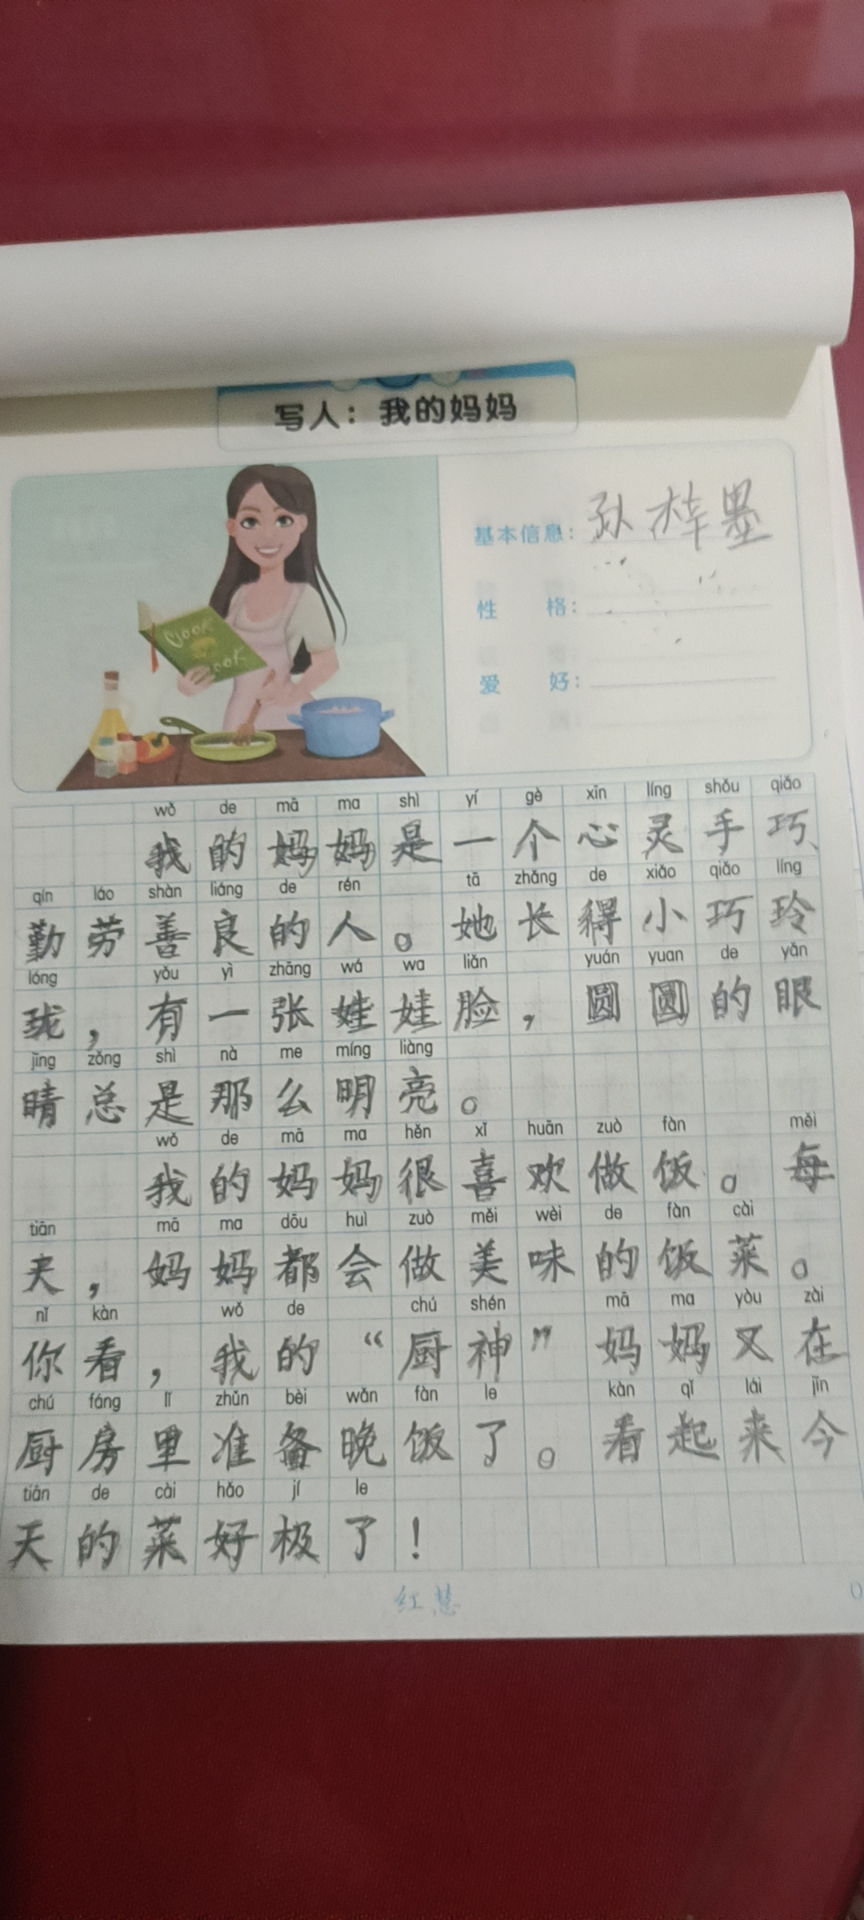 写人：我的妈妈
Cook
Cook
基本信息：孙梓墨
性 格：
爱 好：
wǒ de mā ma shì yí gè xīn líng shǒu qiǎo
我的妈妈是一个心灵手巧、
qín láo shàn liáng de rén tā zhǎng de xiǎo qiǎo líng
勤劳善良的人。她长得小巧玲
lóng yǒu yì zhāng wá wa liǎn yuán yuan de yǎn
珑，有一张娃娃脸，圆圆的眼
jīng zǒng shì nà me míng liàng
睛总是那么明亮。
wǒ de mā ma hěn xǐ huān zuò fàn měi
我的妈妈很喜欢做饭。每
tiān mā ma dōu huì zuò měi wèi de fàn cài
天，妈妈都会做美味的饭菜。
nǐ kàn wǒ de chú shén mā ma yòu zài
你看，我的“厨神”妈妈又在
chú fáng lǐ zhǔn bèi wǎn fàn le kàn qǐ lái jīn
厨房里准备晚饭了。看起来今
tiān de cài hǎo jí le
天的菜好极了！
红慧